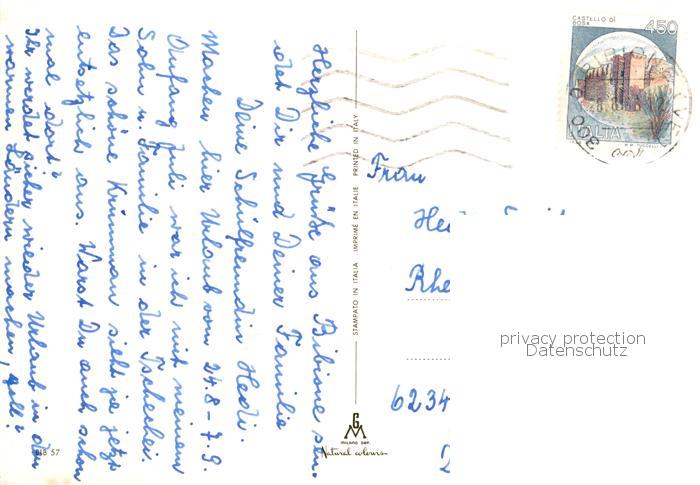 Herzliche Grüße aus Bibione sen-
det Dir und Deiner Familie
Deine Schulfreundin Hedi.
Machen hier Urlaub vom 24.8-7.9.
Anfang Juli war ich mit meinem
Sohn u. Familie in der Tschechei.
Das schöne Krumman sieht ja jetzt
entsetzlich aus. Warst Du auch schon
mal dort?
Ihr werdet sicher wieder Urlaub in den
warmen Ländern machen, gell?
BIB 57
STAMPATO IN ITALIA IMPRIMÉ EN ITALIE PRINTED IN ITALY
GM
milano per
Natural colours
CASTELLO DI
BOSA
450
ITALIA
Frau
Hei
Rhe
6234
privacy protection
Datenschutz